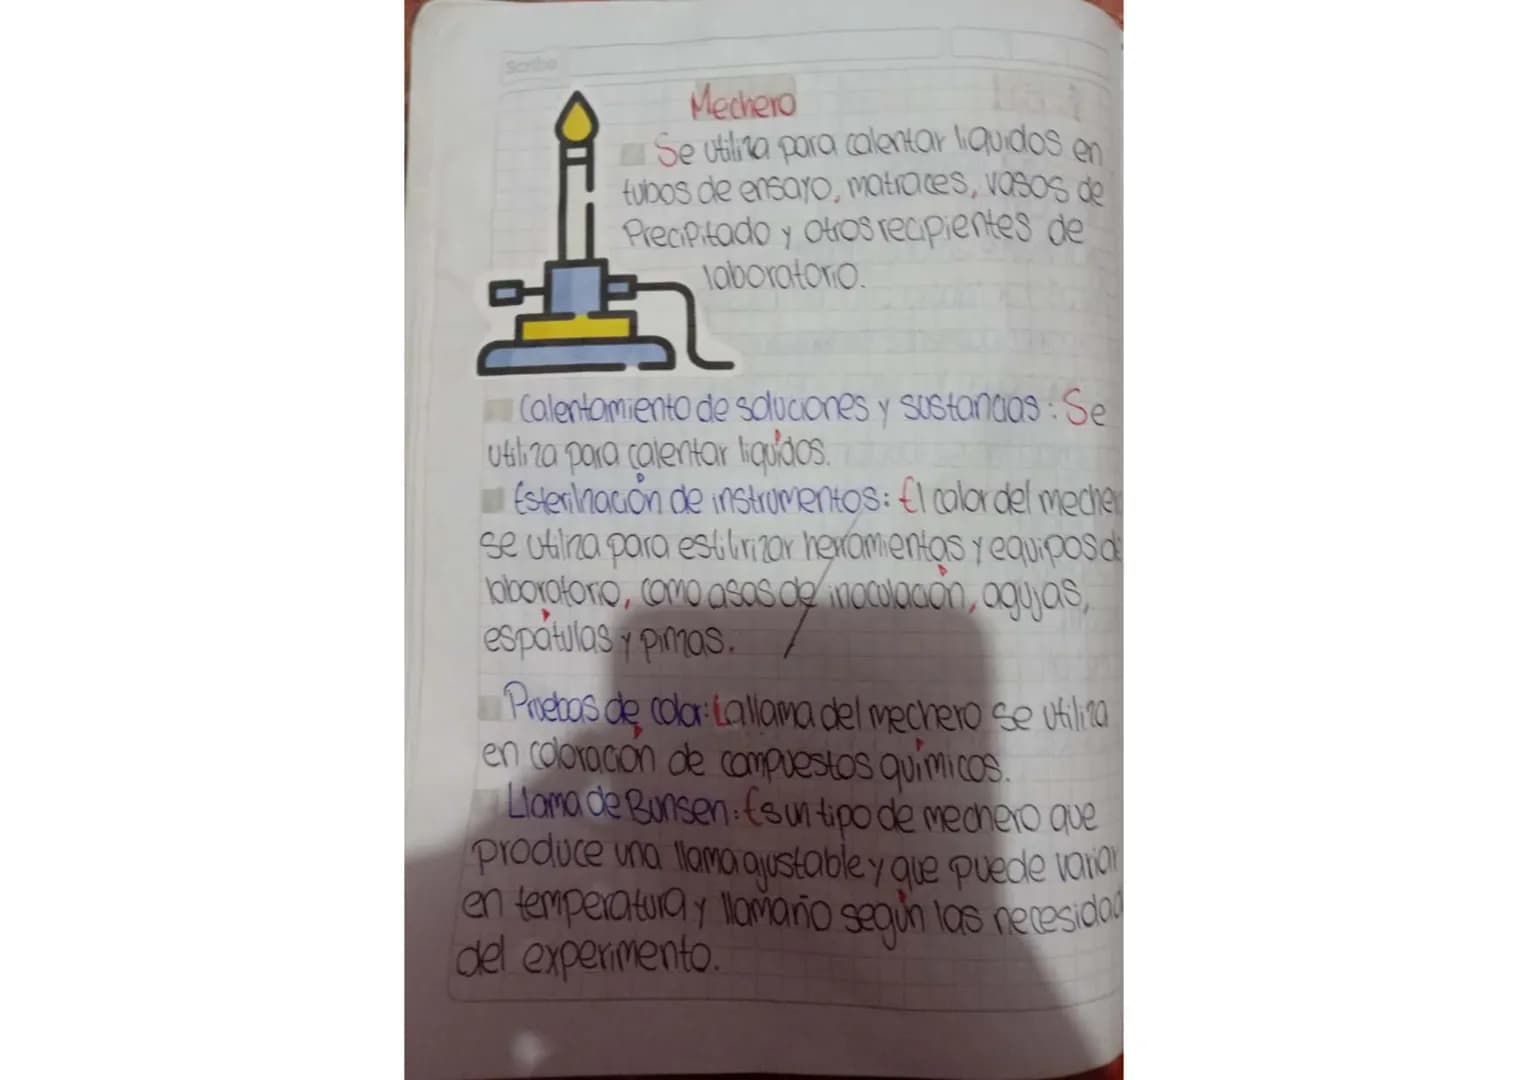 Scribe
Mechero
Se utiliza para calentar liquidos en
tubos de ensayo, matraces, vasos de
Precipitado y otros recipientes de
laboratorio.
Calentamiento de soluciones y sustancias: Se
utiliza para calentar liquidos.
Esterilización de instrumentos: El calor del mecher
se utiliza para estilirizar herramientas y equipos de
laboratorio, como asas de inoculación, agujas,
espátulas y pinzas.
Pruebas de color: La llama del mechero se utiliza
en coloración de compuestos químicos.
Llama de Bunsen: Es un tipo de mechero que
produce una llama ajustable y que puede variar
en temperatura y llamaño según las necesidad
del experimento.